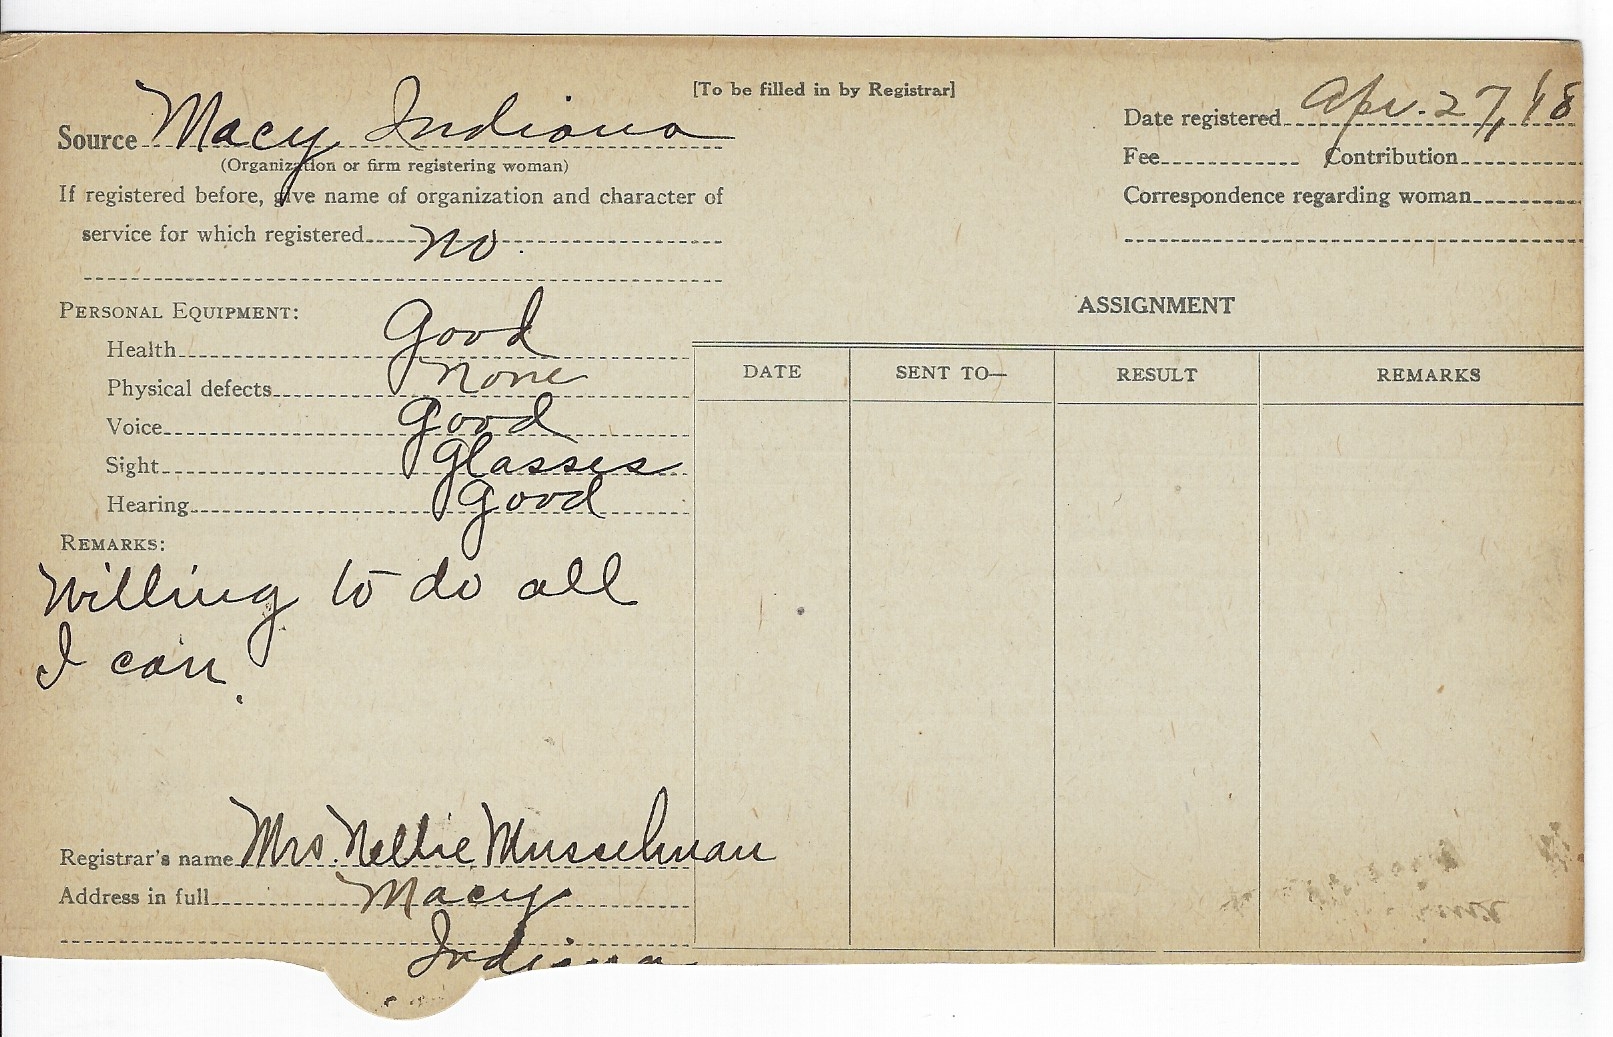 [To be filled in by Registrar]
Source Macy Indiana
(Organization or firm registering woman)
If registered before, give name of organization and character of
service for which registered no.
Date registered Apr. 27, '18
Fee Contribution
Correspondence regarding woman
PERSONAL EQUIPMENT:
Health Good
Physical defects none
Voice Good
Sight Glasses
Hearing Good
REMARKS:
Willing to do all
I can.
Registrar's name Mrs. Nellie Musselman
Address in full Macy
Indiana
ASSIGNMENT
DATE SENT TO— RESULT REMARKS